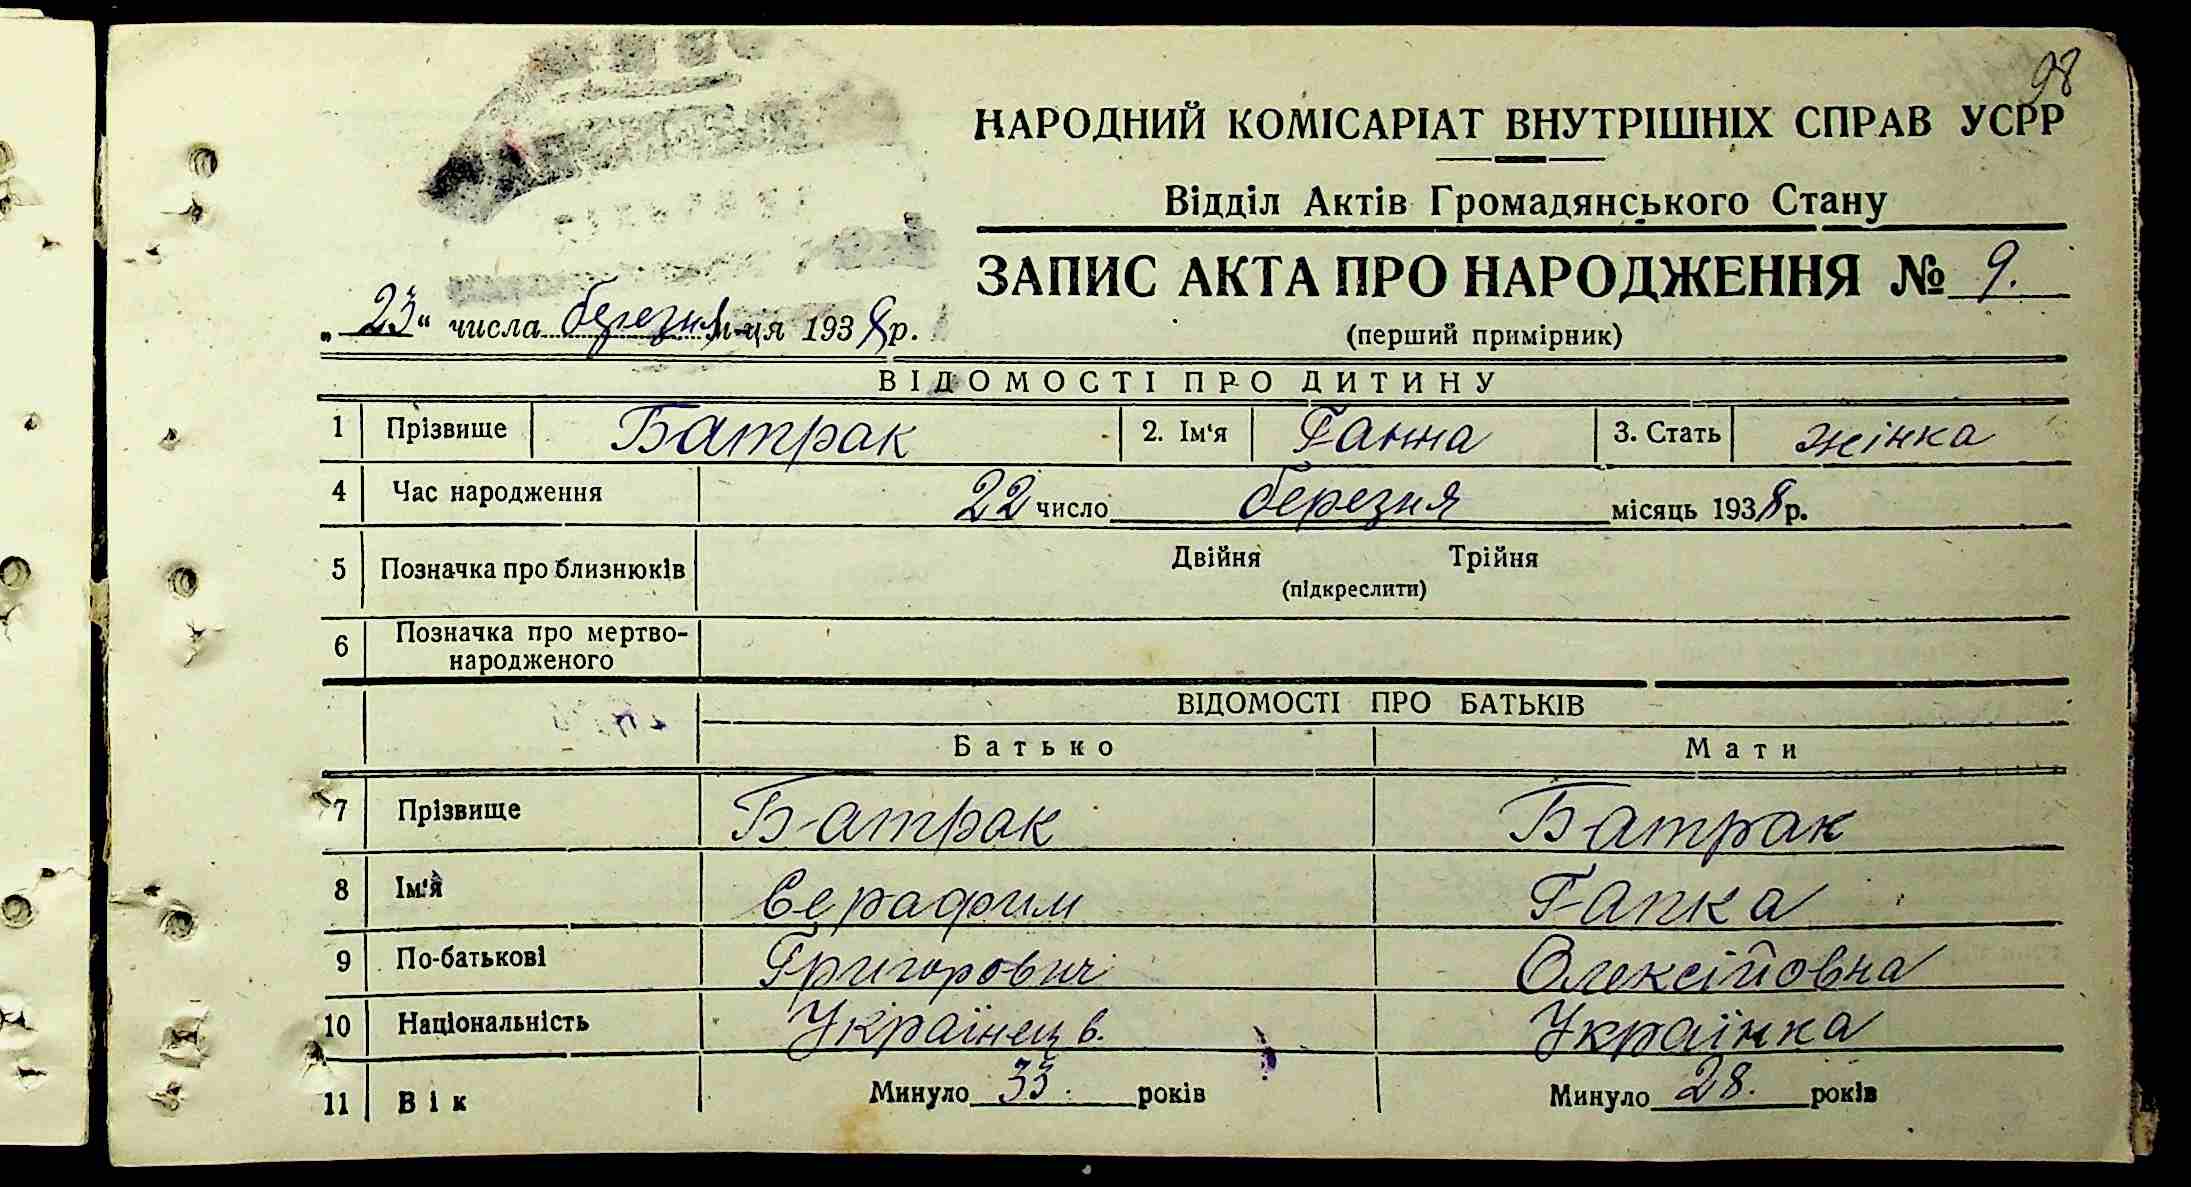 98
НАРОДНИЙ КОМІСАРІАТ ВНУТРІШНІХ СПРАВ УСРР
Відділ Актів Громадянського Стану
ЗАПИС АКТА ПРО НАРОДЖЕННЯ № 9.
(перший примірник)
„23“ числа березня м-ця 1938 р.
ВІДОМОСТІ ПРО ДИТИНУ
1 Прізвище Батрак 2. Ім'я Ганна 3. Стать жінка
4 Час народження 22 число березня місяць 1938 р.
5 Позначка про близнюків Двійня Трійня
(підкреслити)
6 Позначка про мертво-
народженого
ВІДОМОСТІ ПРО БАТЬКІВ
Батько Мати
7 Прізвище Батрак Батрак
8 Ім'я Серафим Гапка
9 По-батькові Григорович Олексійовна
10 Національність Українец в. Українка
11 Вік Минуло 33. років Минуло 28. років